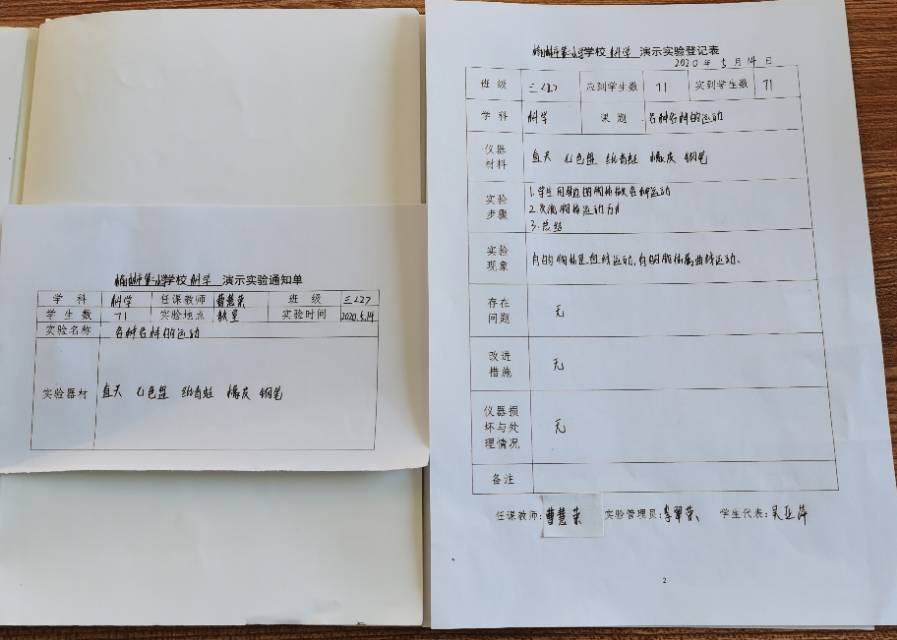 学校 科学 演示实验通知单
学科 科学 任课教师 曹慧荣 班级 三227
学生数 71 实验地点 教室 实验时间 2020.5.14
实验名称 各种各样的运动
实验器材 直尺 七色盘 纸青蛙 橡皮 钢笔
学校 科学 演示实验登记表
2020年5月14日
班级 三227 应到学生数 71 实到学生数 71
学科 科学 课题 各种各样的运动
仪器材料 直尺 七色盘 纸青蛙 橡皮 钢笔
实验步骤 1.学生用身边的物体做各种运动
2.交流物体运动方
3.总结
实验现象 有的物体是直线运动,有的物体属曲线运动、
存在问题 无
改进措施 无
仪器损坏与处理情况 无
备注
任课教师:曹慧荣 实验管理员:李翠荣 学生代表:吴亚萍
2